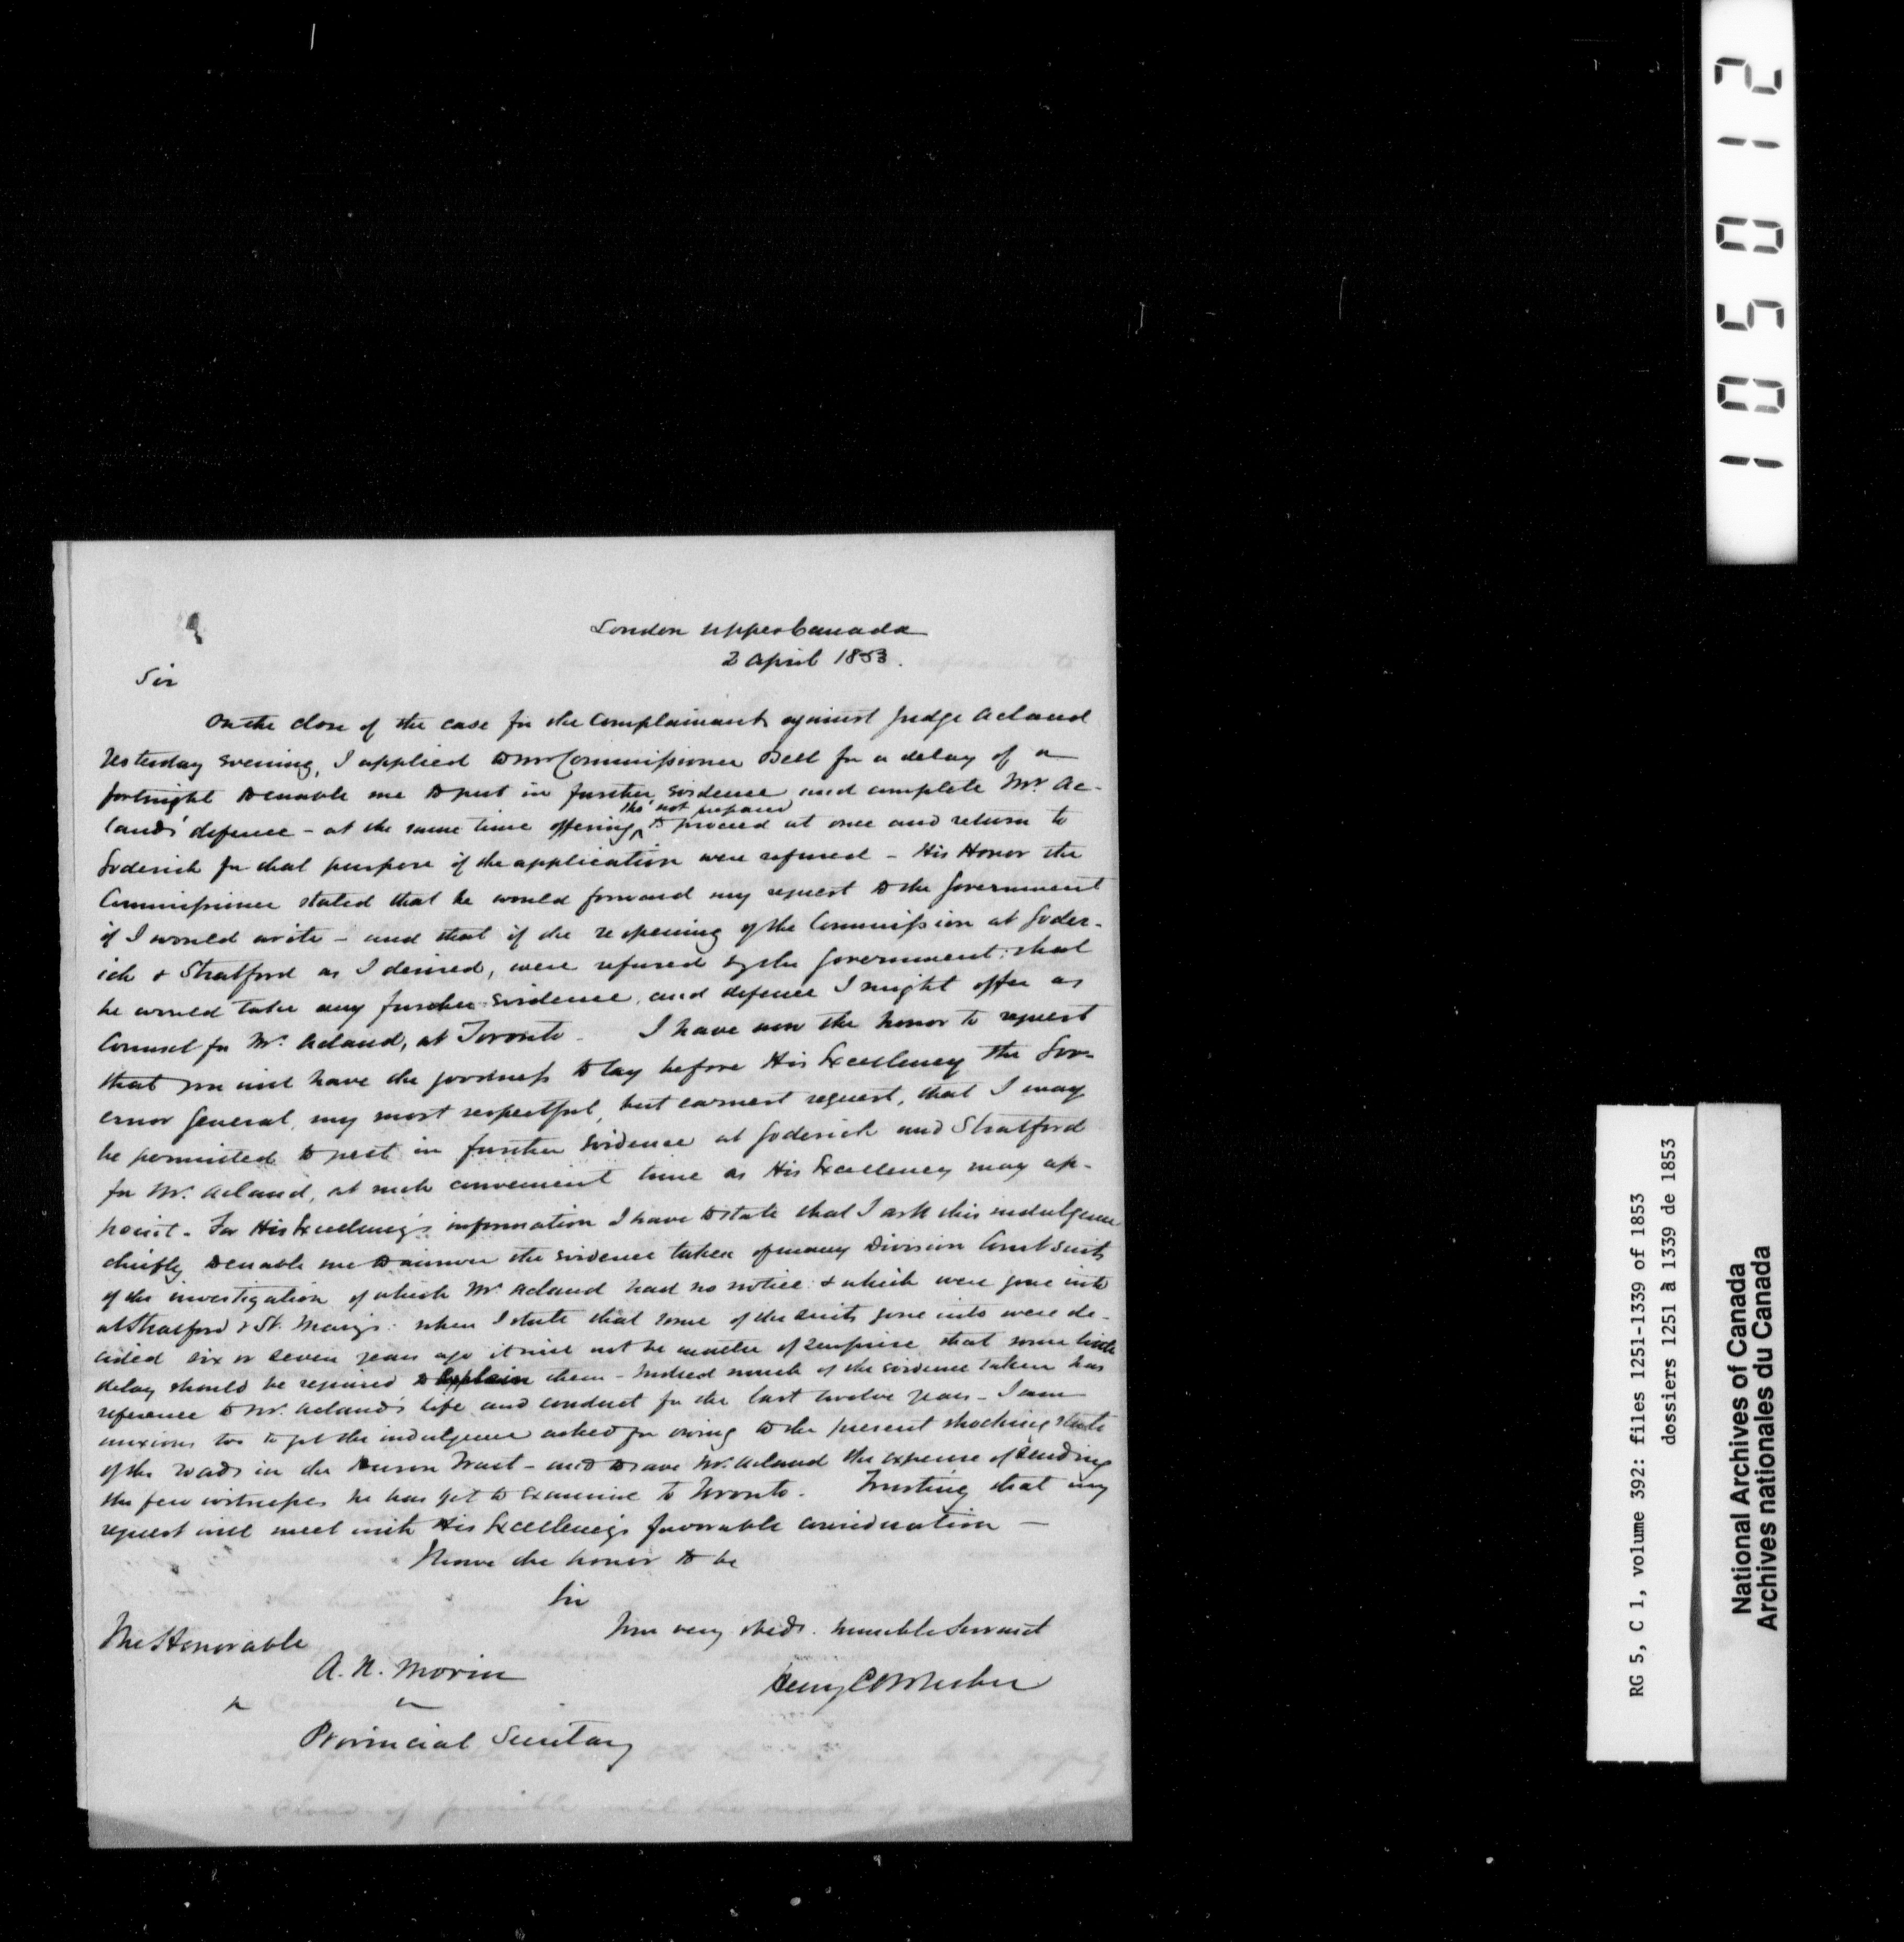 London Upper Canada
2 April 1853.
Sir
On the close of the case for the Complainants against Judge Acland
Yesterday evening, I applied to Mr Commissioner Bell for a delay of a
fortnight to enable me to put in further evidence and complete Mr. Ac-
lands' defence - at the same time offering tho' not prepared to proceed at once and return to
Goderich for that purpose if the application were refused - His Honor the
Commissioner stated that he would forward my request to the Government
if I would write - and that if the reopening of the Commission at Goder-
ich & Stratford as I desired, were refused by the Government: that
he would take any further evidence, and defence I might offer as
Counsel for Mr. Acland, at Toronto - I have now the honor to request
that you will have the goodness to lay before His Excellency the Gov-
ernor General, my most respectful, but earnest request, that I may
be permitted to put in further evidence at Goderich and Stratford
for Mr. Acland, at such convenient time as His Excellency may ap-
point - For His Excellency's information I have to state that I ask this indulgence
chiefly to enable me to answer the evidence taken of many Division Court suits
of the investigation of which Mr Acland had no notice & which were gone into
at Stratford & St. Marys: when I state that some of the suits gone into were de-
cided six or seven years ago it will not be matter of surprise that some little
delay should be required to explain them - Indeed much of the evidence taken has
reference to Mr. Acland's life and conduct for the last twelve years - I am
anxious too to get the indulgence asked for owing to the present shocking state
of the roads in the Huron Tract - and to save Mr. Acland the expense of sending
the few witnesses he has got to examine to Toronto - Trusting that my
request will meet with His Excellency's favorable consideration -
I have the honor to be
Sir
Your very obedt. humble Servant
Henry C R Becher
The Honorable
A. N. Morin
Provincial Secretary
105012
RG 5, C 1, volume 392: files 1251-1339 of 1853
dossiers 1251 à 1339 de 1853
National Archives of Canada
Archives nationales du Canada